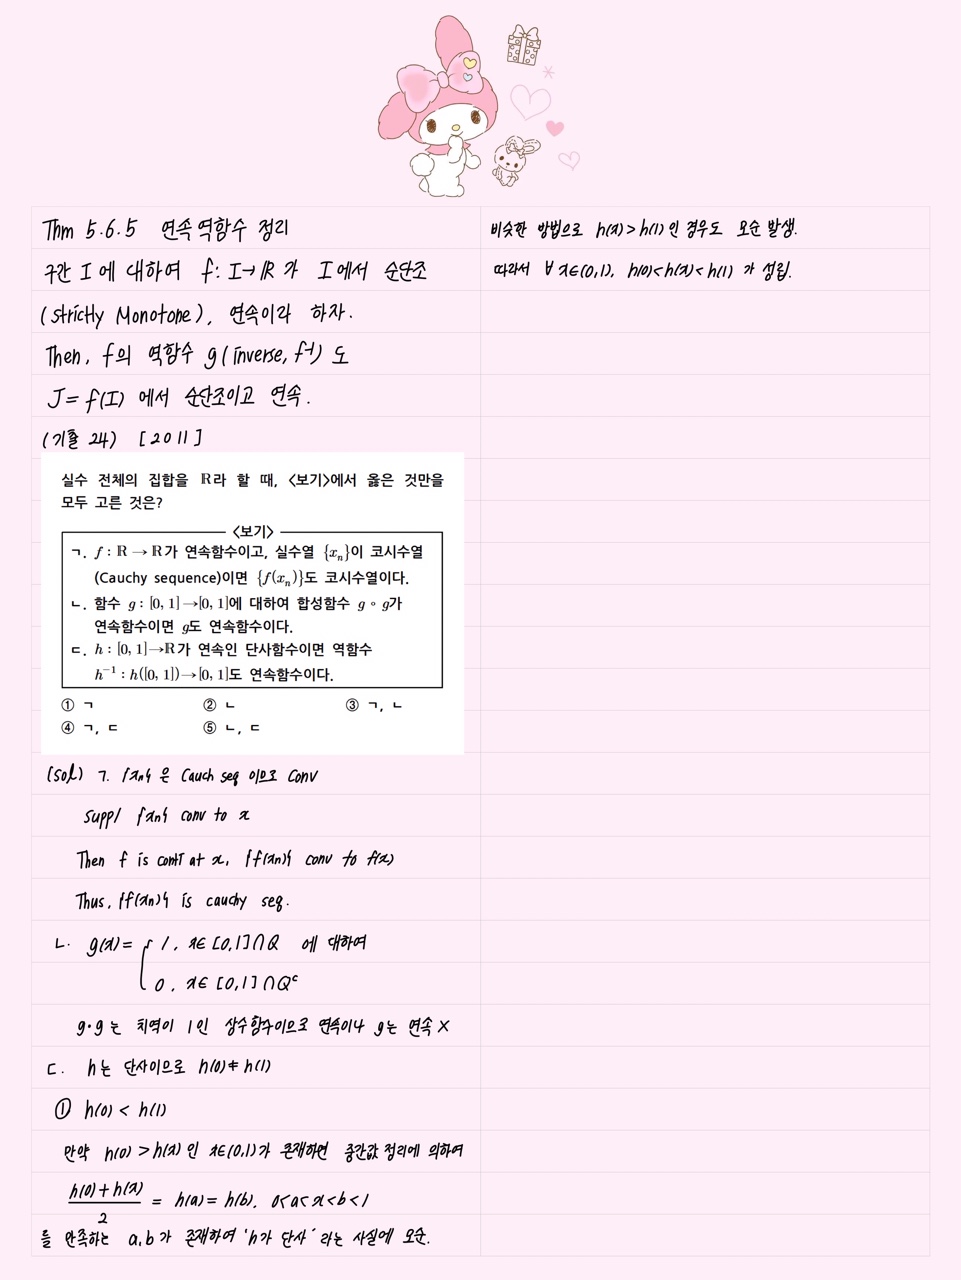 Thm 5.6.5 연속 역함수 정리
구간 I에 대하여 f: I→ℝ가 I에서 순단조
(strictly Monotone), 연속이라 하자.
Then, f의 역함수 g(inverse, f⁻¹)도
J=f(I)에서 순단조이고 연속.
(기출 24) [2011]
실수 전체의 집합을 ℝ라 할 때, <보기>에서 옳은 것만을
모두 고른 것은?
<보기>
ㄱ. f : ℝ → ℝ가 연속함수이고, 실수열 {xₙ}이 코시수열
(Cauchy sequence)이면 {f(xₙ)}도 코시수열이다.
ㄴ. 함수 g : [0, 1]→[0, 1]에 대하여 합성함수 g∘g가
연속함수이면 g도 연속함수이다.
ㄷ. h : [0, 1]→ℝ가 연속인 단사함수이면 역함수
h⁻¹ : h([0, 1])→[0, 1]도 연속함수이다.
① ㄱ ② ㄴ ③ ㄱ, ㄴ
④ ㄱ, ㄷ ⑤ ㄴ, ㄷ
(sol) ㄱ. {xn}은 Cauch seq 이므로 conv
supp/ {xn} conv to x
Then f is conti at x, {f(xn)} conv to f(x)
Thus, {f(xn)} is cauchy seq.
ㄴ. g(x)= { 1, x∈[0,1]∩Q 에 대하여
0, x∈[0,1]∩Qᶜ
g∘g는 치역이 1인 상수함수이므로 연속이나 g는 연속 X
ㄷ. h는 단사이므로 h(0)≠h(1)
① h(0) < h(1)
만약 h(0)>h(x)인 x∈(0,1)가 존재하면 중간값 정리에 의하여
(h(0)+h(x))/2 = h(a)=h(b), 0<a<x<b<1
를 만족하는 a,b가 존재하여 'h가 단사'라는 사실에 모순.
비슷한 방법으로 h(x)>h(1)인 경우도 모순 발생.
따라서 ∀x∈(0,1), h(0)<h(x)<h(1)가 성립.